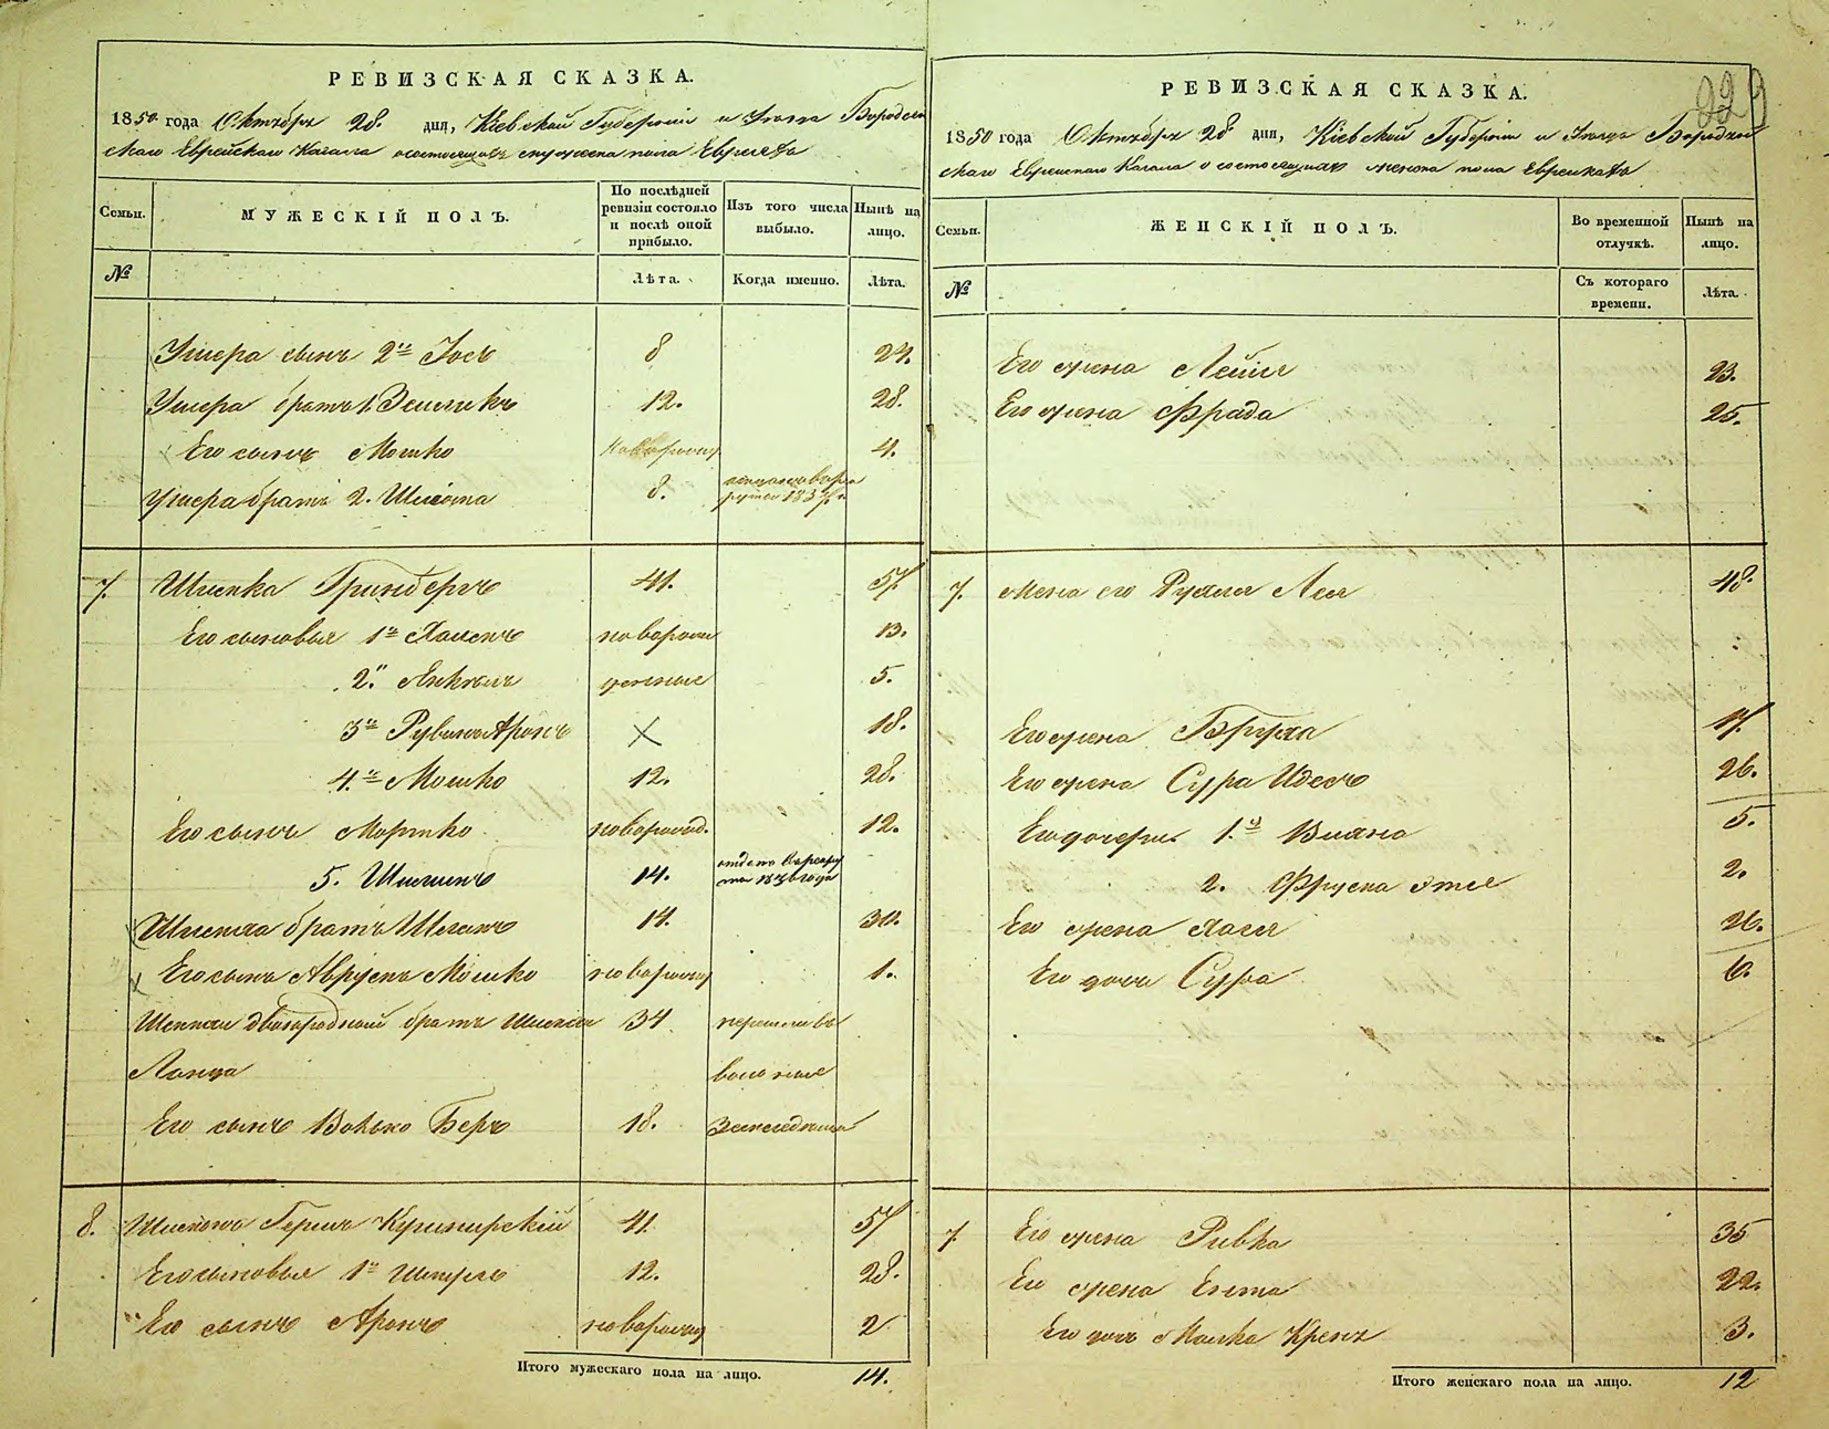 229
РЕВИЗСКАЯ СКАЗКА.
1850 года Октября 28. дня, Кіевской Губерніи и Уѣзда Бородян
скаго Еврейскаго Кагала о состоящихъ мужеска пола Евреяхъ
Семьи.
МУЖЕСКІЙ ПОЛЪ.
По послѣдней ревизіи состояло и послѣ оной прибыло.
Изъ того числа выбыло.
Нынѣ на лицо.
№
Лѣта.
Когда именно.
Лѣта.
сынъ 2й Іось 8 24.
братъ 1. Зейликъ 12. 28.
Его сынъ Мошко новорожд 4.
братъ 2. 8.
7. Шлемка Гринбергъ 41. 57
Его сыновья 1й Хаимъ новорож 13.
2й Янкель денные 5.
3й Рувинъ Аронъ 18.
4й Мошко 12. 28.
Его сынъ Мортко новорожд. 12.
5. 14. отданъ въ рекру
ты 1836 года
братъ 14. 30.
Его сынъ Аврумъ Мошко новорожд 1.
двоюродный братъ 34 перешли въ
вольные
Его сынъ Волько Беръ 18. Земледѣльцы
8. Гершъ 41. 57
Его сыновья 1й 12. 28.
Его сынъ Аронъ новорожд 2
Итого мужескаго пола на лицо. 14.
РЕВИЗСКАЯ СКАЗКА.
1850 года Октября 28 дня, Кіевской Губерніи и Уѣзда Бородян
скаго Еврейскаго Кагала о состоящихъ женска пола Еврейкахъ
Семьи.
ЖЕНСКІЙ ПОЛЪ.
Во временной отлучкѣ.
Нынѣ на лицо.
№
Съ котораго времени.
Лѣта.
Его жена 23.
Его жена Фрада 25.
7. Жена его Рухля Лея 48.
Его жена Бруха 17.
Его жена Сура Идесъ 26.
Его дочери 1я 5.
2. 2.
Его жена Хася 26.
Его дочь Сура 6.
7 Его жена Ривка 35
Его жена Ента 22.
Его дочь Малка Крейна 3.
Итого женскаго пола на лицо. 12